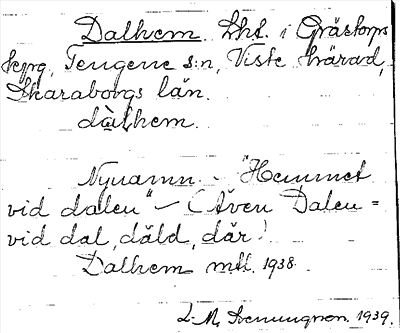 Dalhem Lht. i Grästorps
kpg, Tengene s:n, Viste härad,
Skaraborgs län.
dàlhem.
Nynamn - "Hemmet
vid dalen" - (Även Dalen =
vid dal, däld, där)
Dalhem mtl. 1938.
L-M. 1939.